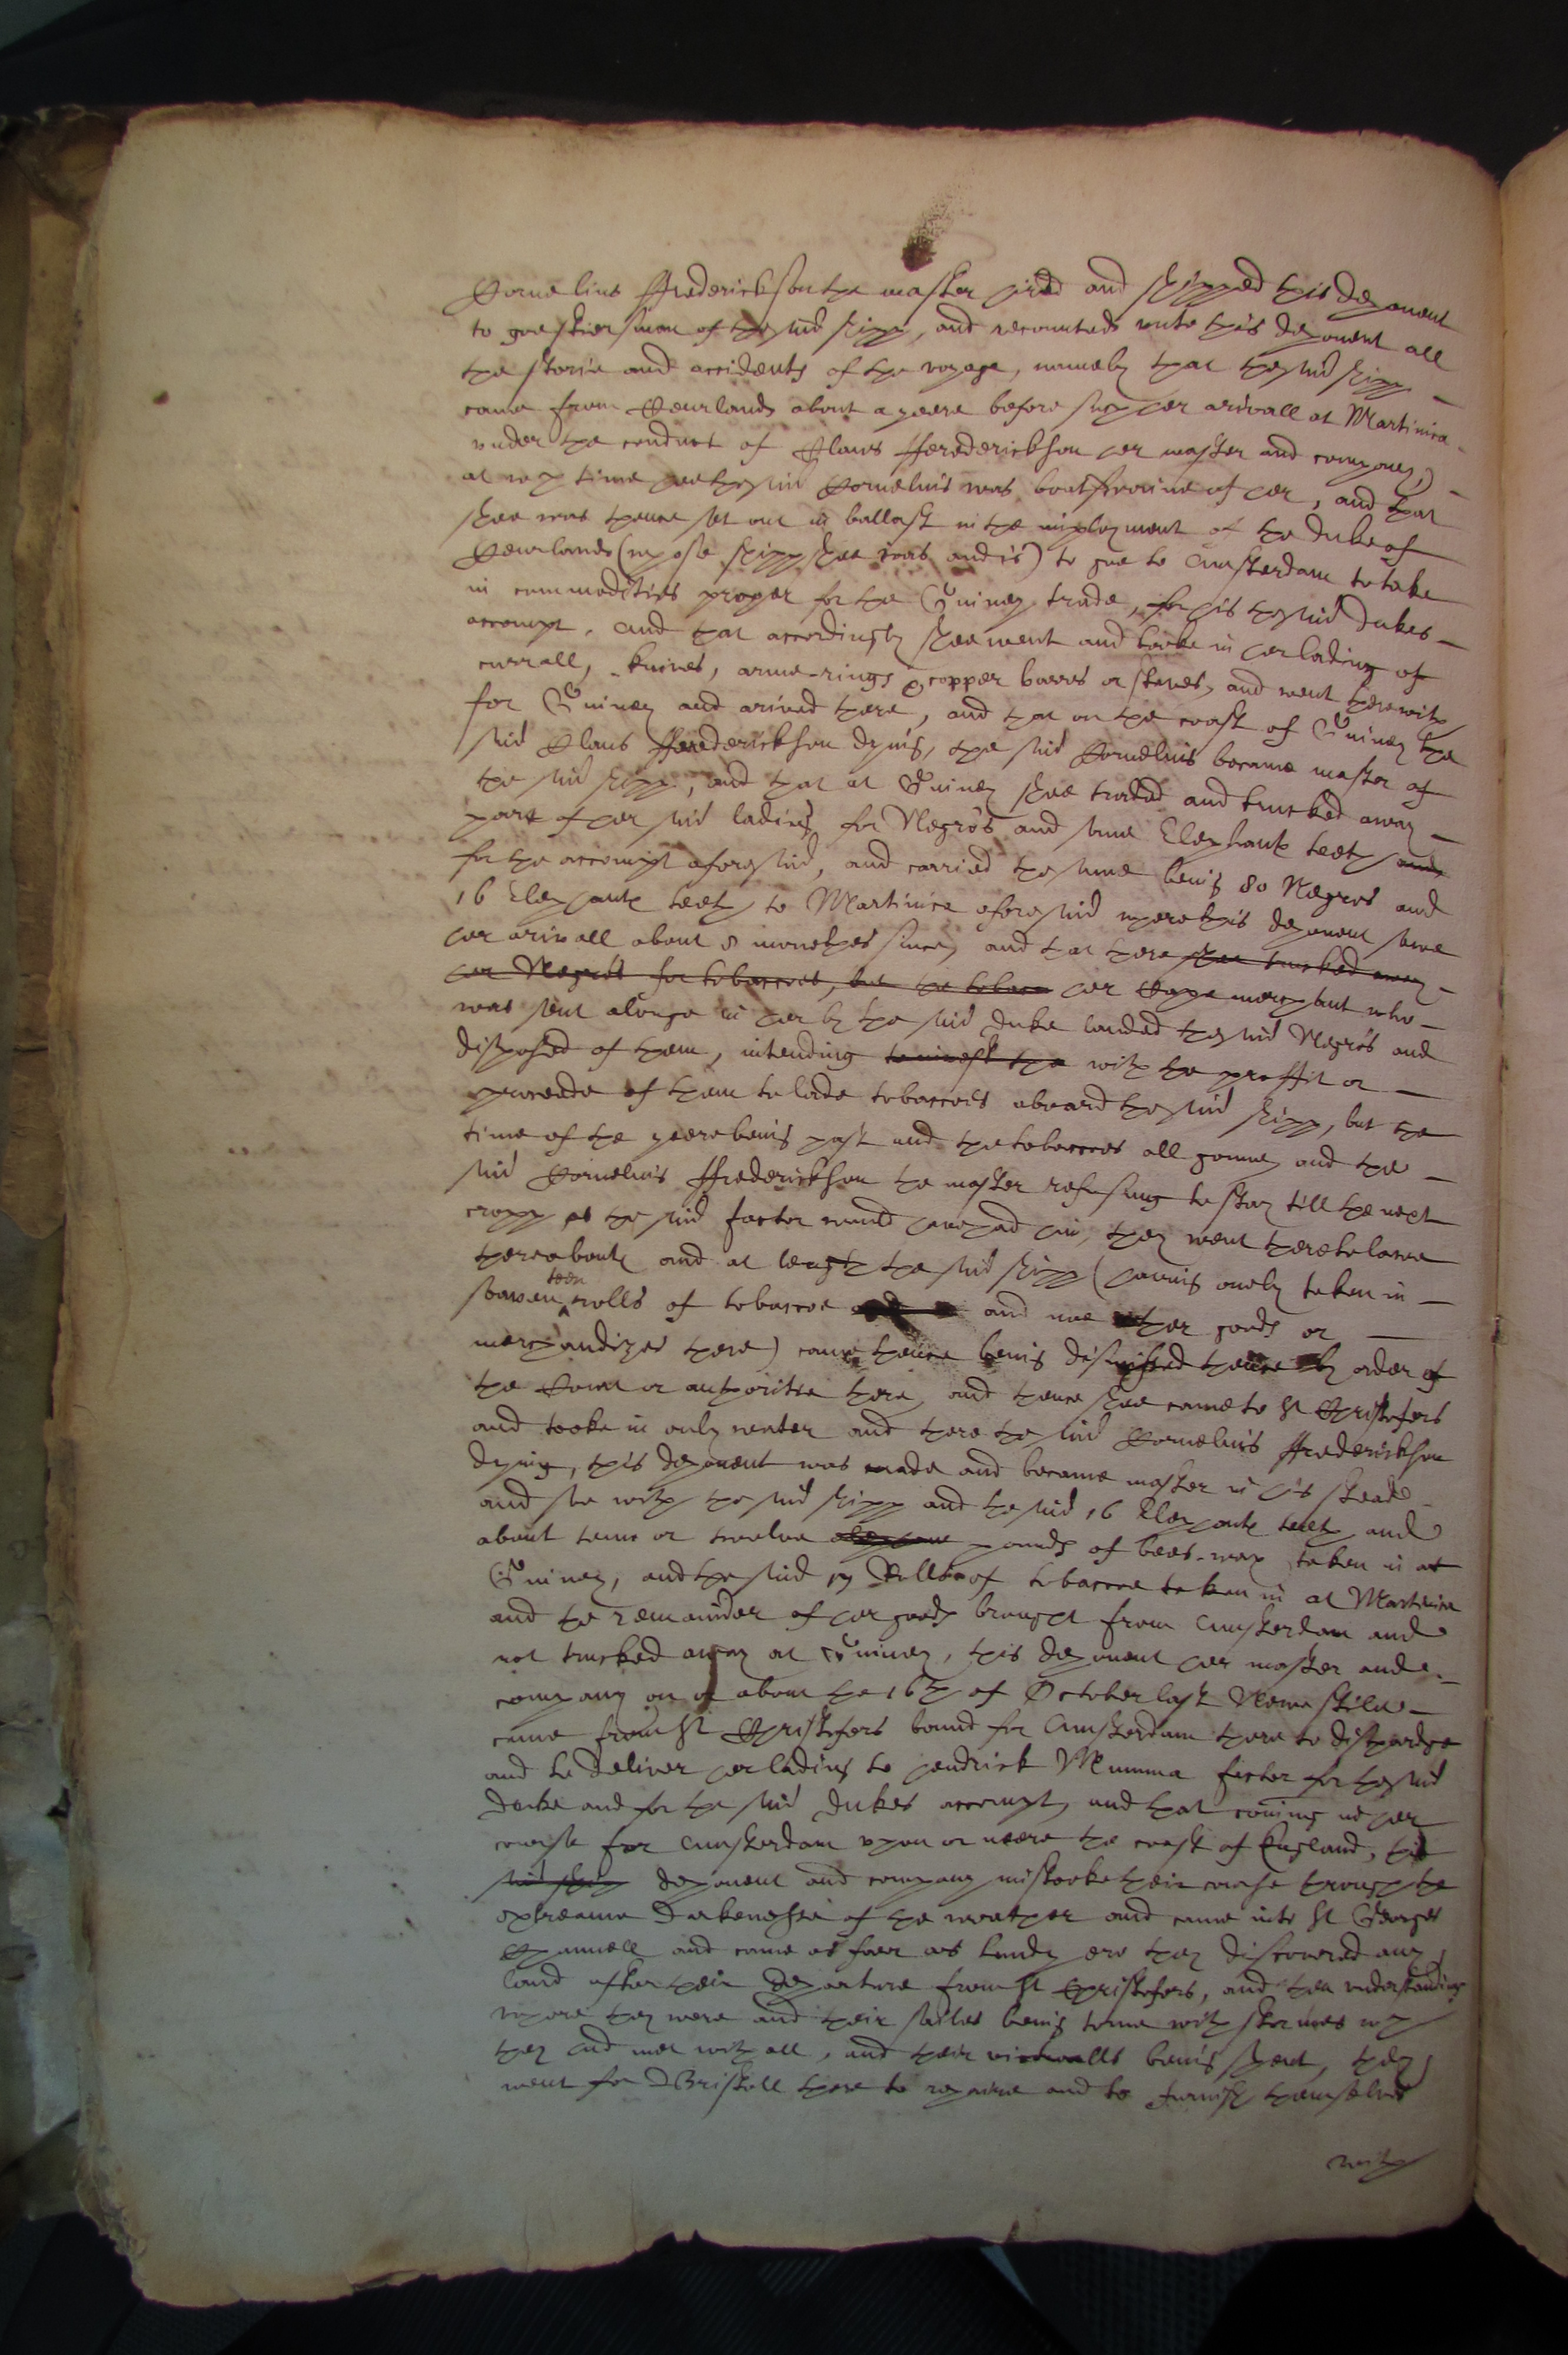 Cornelius ffrederickson the master hired and shipped this deponent
to goe stiersman of the said shipp, and recounted unto this deponent all
the storie and accidents of the voyage, namely that the said shipp
came from Courland about a yeere before such her arivall at Martinica
under the conduct of Claus ffrederickson her master and company,
at which time hee the said Cornelius was boatswaine of her, and that
shee was thence set out in ballast in the imployment of the duke of
Courland (whose shipp shee was and is) to goe to Amsterdam to take
in commodities proper for the Guiney trade, for his the said dukes
accompt, and that accordingly shee went and tooke in her lading of
currall, knives, arme-rings & copper barrs or staves, and went therewith
for Guiney and arived there, and that on the coast of Guiney the
said Claus ffrederickson dying, the said Cornelius became master of
the said shipp, and that at Guiney shee traded and trucked away
part of her said lading for Negros and some Elephants teeth and
for the accompt aforesaid, and carried the same being 80 Negros and
16 Elephants teeth to Martinica aforesaid where this deponent sawe
her arivall about 8 monethes since, and that there shee trucked away
her Negros for tobaccoes, but the tobacc her Cape merchant who
was sent alonge in her by the said duke landed the said Negros and
disposed of them, intending to invest the with the proffit or
proceede of them to lade tobaccoes aboard the said shipp, but the
time of the yeere being past and the tobaccoes all gonne, and the
said Cornelius ffrederickson the master refusing to stay till the next
cropp as the said factor would have had him, they went there
thereabouts and at length the said shipp (having onely taken in
seaventeen rolls of tobaccoe and noe other goods or
merchandizes there) came thence being dismissed thence by order of
the Court or authoritie there, and thence shee came to St Christofers
and tooke in only water and there the said Cornelius ffrederickson
dying, this deponent was made and became master in his steade
and soe with the said shipp and the said 16 Elephants teeth and
about tenn or twelve pounds of bees-wax taken in at
Guiney, and the said 17 Rolls of tobaccoe taken in at Martinica
and the remainder of her goods brought from Amsterdam and
not trucked away at Guiney, this deponent her master and
company on or about the 16th of October last Newe stile
came from St Christofers bound for Amsterdam there to discharge
and to deliver her lading to Hendrick Mumma factor for the said
duke and for the said dukes accompt, and that coming in her
course for Amsterdam upon or neere the coast of England, this
said shipp deponent and company mistooke their course through the
extreame darkenesse of the weather and came into St Georges
Channell and came as farr as Lundy ere they discovered any
land after their departure from St Christofers, and then understanding
where they were and their sailes being torne with stormes which
they had met withall, and their victualls being spent, they
went for Bristoll there to repaire and to furnish themselves
with